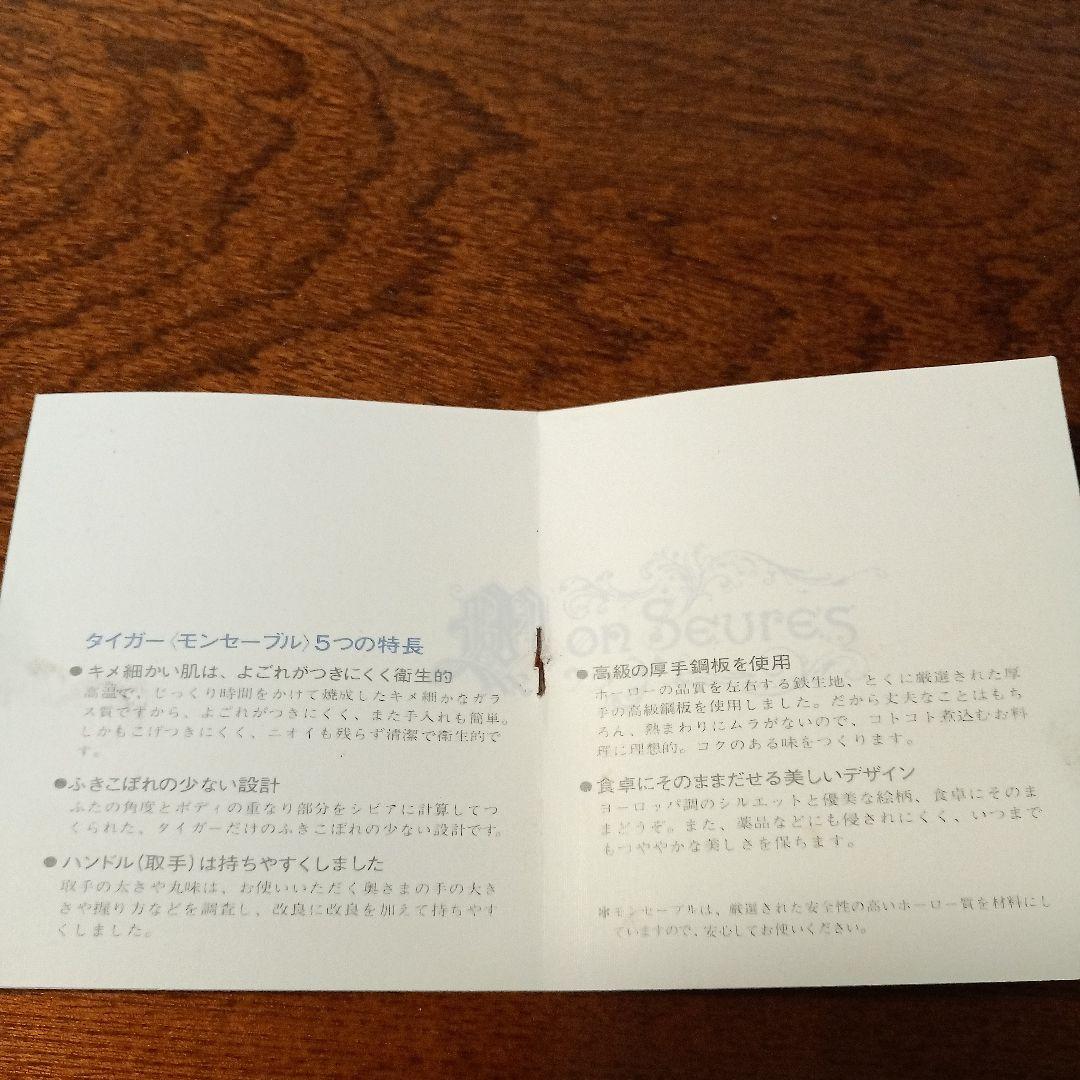 タイガー〈モンセーブル〉5つの特長
●キメ細かい肌は、よごれがつきにくく衛生的
高温で、じっくり時間をかけて焼成したキメ細かなガラ
ス質ですから、よごれがつきにくく、また手入れも簡単。
しかもこげつきにくく、ニオイも残らず清潔で衛生的で
す。
●ふきこぼれの少ない設計
ふたの角度とボディの重なり部分をシビアに計算してつ
くられた、タイガーだけのふきこぼれの少ない設計です。
●ハンドル(取手)は持ちやすくしました
取手の太さや丸味は、お使いいただく奥さまの手の大き
さや握り方などを調査し、改良に改良を加えて持ちやす
くしました。
Mon Seures
●高級の厚手鋼板を使用
ホーローの品質を左右する鉄生地、とくに厳選された厚
手の高級鋼板を使用しました。だから丈夫なことはもち
ろん、熱まわりにムラがないので、コトコト煮込むお料
理に理想的。コクのある味をつくります。
●食卓にそのままだせる美しいデザイン
ヨーロッパ調のシルエットと優美な絵柄、食卓にそのま
まどうぞ。また、薬品などにも侵されにくく、いつまで
もつややかな美しさを保ちます。
※モンセーブルは、厳選された安全性の高いホーロー質を材料にし
ていますので、安心してお使いください。